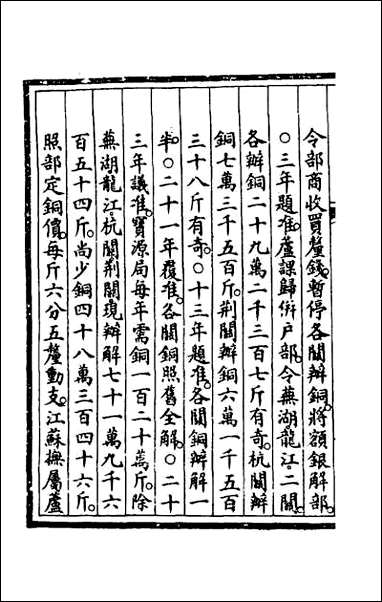 令部商收買釐錢。暫停各關辦銅。將額銀解部。
○三年題准。蘆課歸併戶部。令蕪湖龍江。二關。
各辦銅二十九萬二千三百七斤有奇。杭關辦
銅七萬三千五百斤。荆關辦銅六萬一千五百
三十八斤有奇。○十三年題准。各關銅辦解一
半。○二十一年覆准。各關銅照舊全解。○二十
三年議准。寶源局每年需銅一百二十萬斤。除
蕪湖龍江。杭關荆關現辦解七十一萬九千六
百五十四斤。尚少銅四十八萬三百四十六斤。
照部定銅價。每斤六分五釐動支。江蘇撫屬蘆